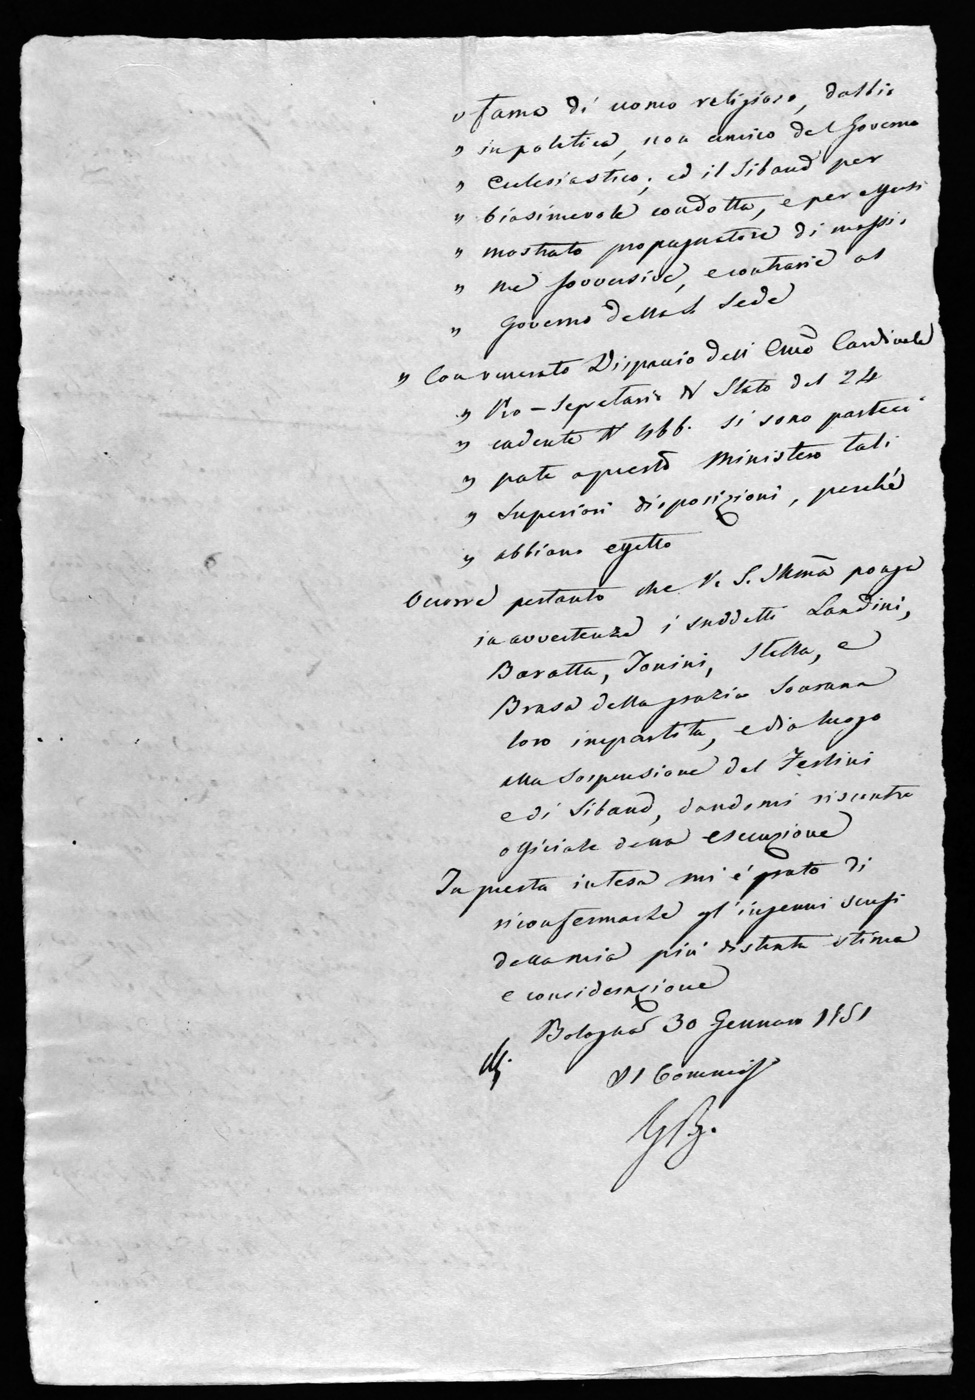 " fama di uomo religioso, dubbio
" in politica, non amico del Governo
" Ecclesiastico; ed il Sibaud per
" biasimevole condotta, e per essersi
" mostrato propagnatore di massi-
" me sovversive, e contrarie al
" Governo della S. Sede
" Con venerato Dispaccio dell' Emo Cardinale
" Pro-Segretario di Stato del 24
" cadente N
si sono parteci
" pate a questo Ministero tali
" Superiori disposizioni, perché
" abbiano effetto
Occorre pertanto che V. S. Illma ponga
in avvertenza i suddetti Landini,
Baratta, Tonini, Stella, e
Brasa della grazia Sovrana
loro impartita, e dia luogo
alla Sospensione del Festini
e di Sibaud, dandomi riscontro
officiale della esecuzione
In questa intesa mi é grato di
riconfermarle gl'ingenui sensi
della mia più distinta stima
e considerazione
Bologna 30 Gennaro 1851
Il Commiss°
GB.